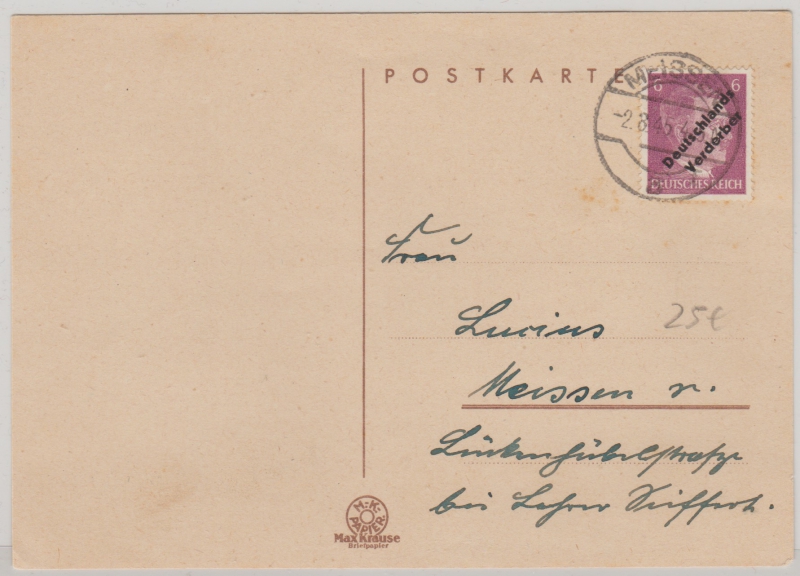 POSTKARTE
MEISSEN
-2.8.45
6 6
Deutschlands
Verderber
DEUTSCHES REICH
Frau
Lucius
25€
Meissen r.
Lückenhübelstraße
bei Lehrer Seiffert.
M.-K.-
PAPIER
Max Krause
Briefpapier